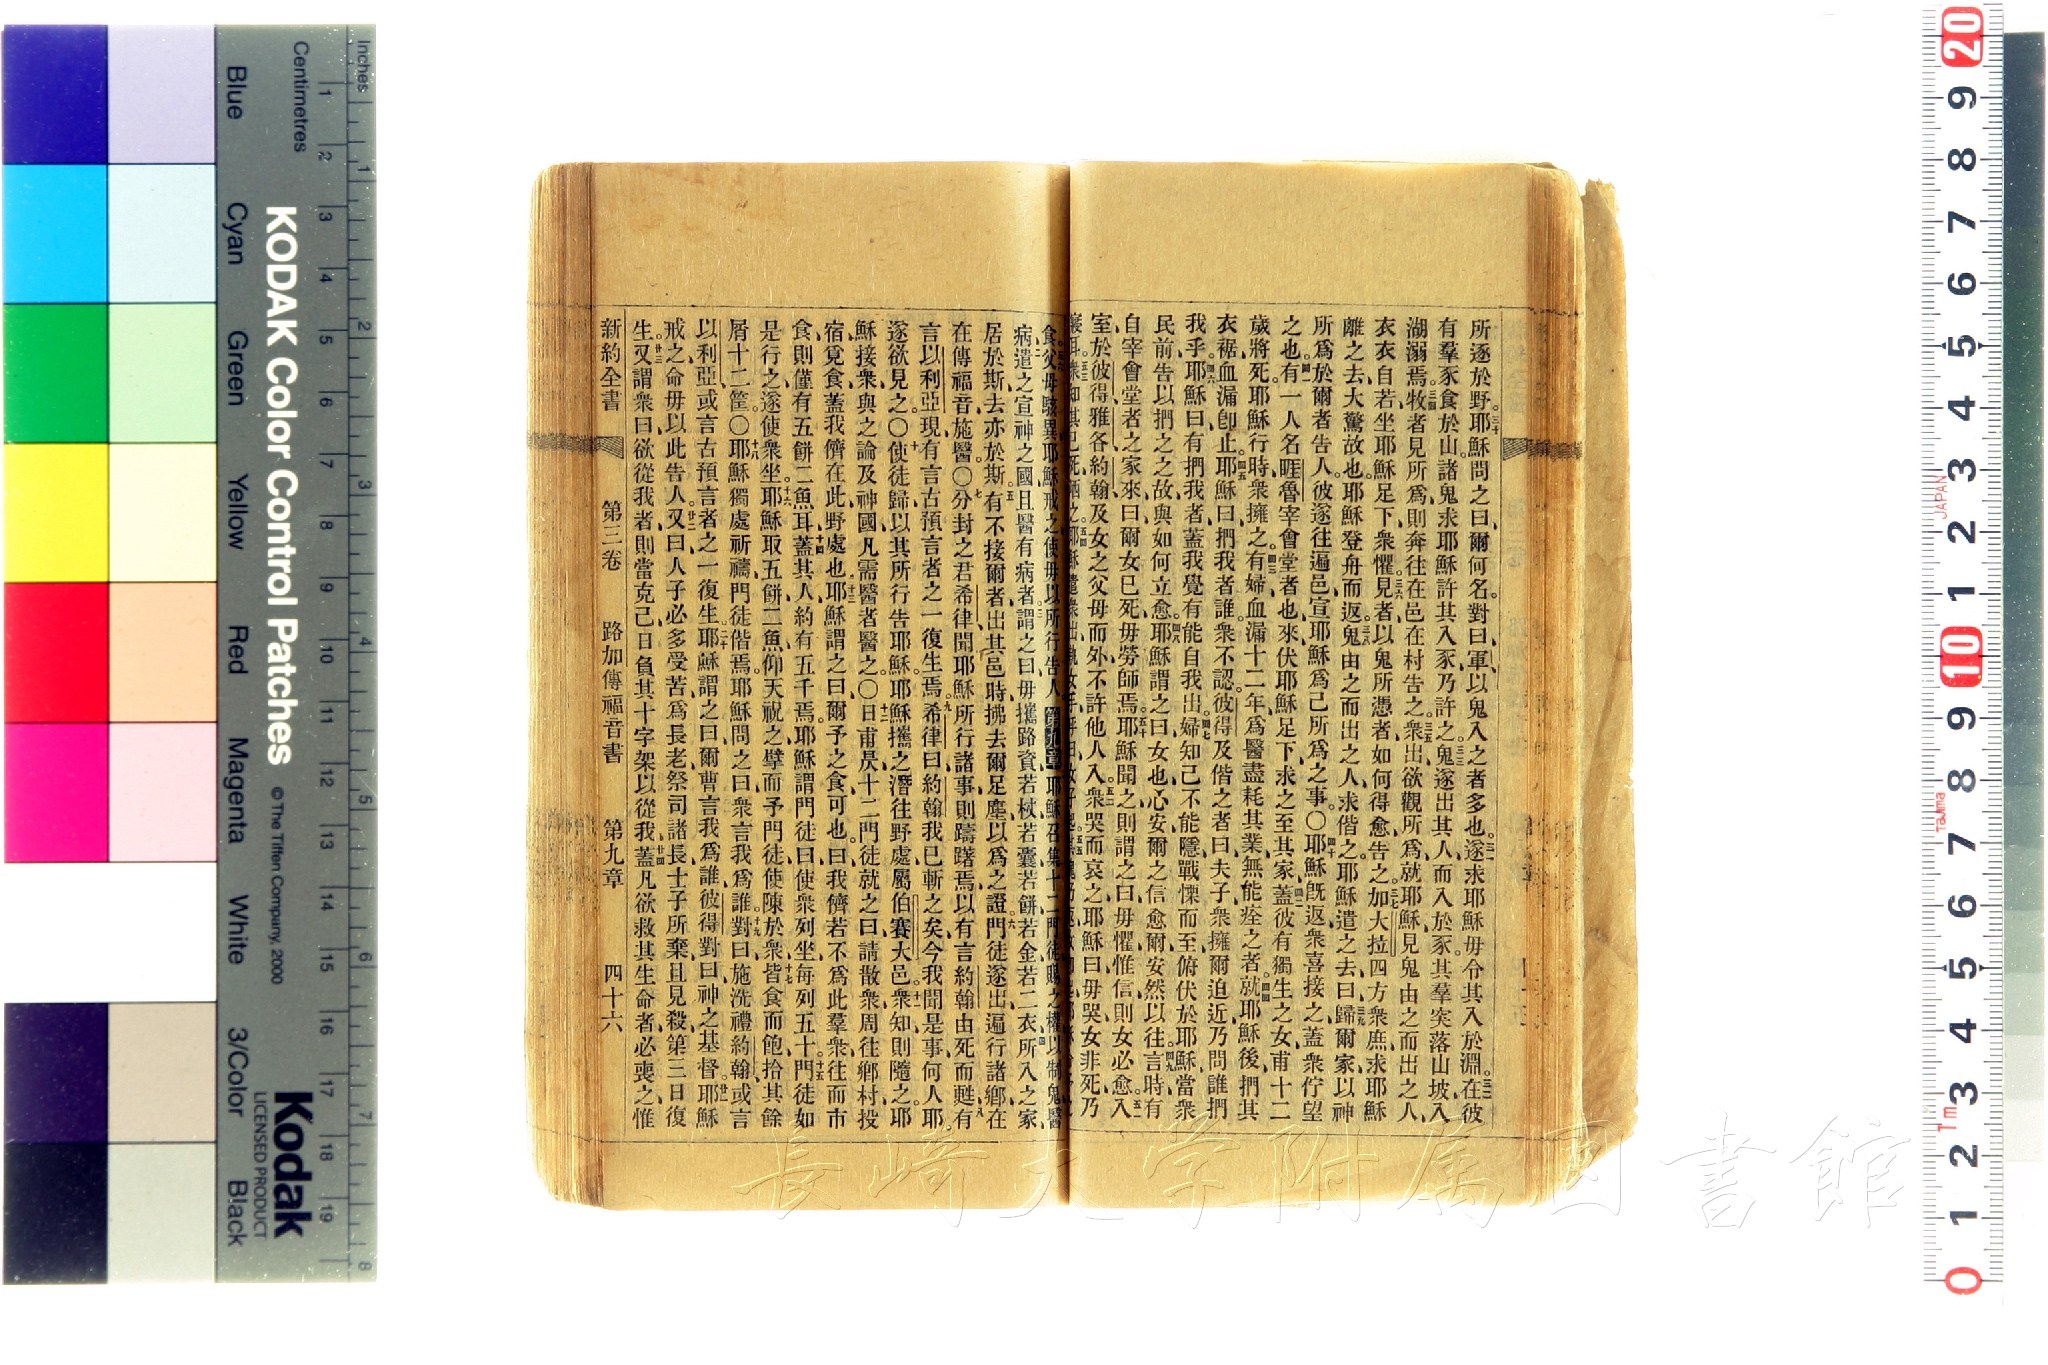 所逐於野耶穌問之曰爾何名對曰軍以鬼入之者多也遂求耶穌毋令其入於淵在彼
有羣豕食於山諸鬼求耶穌許其入豕乃許之鬼遂出其人而入於豕其羣突落山坡入
湖溺焉牧者見所爲則奔往在邑在村告之衆出欲觀所爲就耶穌見鬼由之而出之人
衣衣自若坐耶穌足下衆懼見者以鬼所憑者如何得愈告之加大拉四方衆庶求耶穌
離之去大驚故也耶穌登舟而返鬼由之而出之人求偕之耶穌遣之去曰歸爾家以神
所爲於爾者告人彼遂往遍邑宣耶穌爲己所爲之事〇耶穌旣返衆喜接之蓋衆佇望
之也有一人名睚魯宰會堂者也來伏耶穌足下求之至其家蓋彼有獨生之女甫十二
歲將死耶穌行時衆擁之有婦血漏十二年爲醫盡耗其業無能痊之者就耶穌後捫其
衣裾血漏卽止耶穌曰捫我者誰衆不認彼得及偕之者曰夫子衆擁爾迫近乃問誰捫
我乎耶穌曰有捫我者蓋我覺有能自我出婦知己不能隱戰慄而至俯伏於耶穌當衆
民前告以捫之之故與如何立愈耶穌謂之曰女也心安爾之信愈爾安然以往言時有
自宰會堂者之家來曰爾女已死毋勞師焉耶穌聞之則謂之曰毋懼惟信則女必愈入
室於彼得雅各約翰及女之父母而外不許他人入衆哭而哀之耶穌曰毋哭女非死乃
食父母駭異耶穌戒之使毋以所行告人第九章耶穌召集十二門徒賜之權以制鬼醫
病遣之宣神之國且醫有病者謂之曰毋攜路資若杖若囊若餅若金若二衣所入之家
居於斯去亦於斯有不接爾者出其邑時拂去爾足塵以爲之證門徒遂出遍行諸鄉在
在傳福音施醫〇分封之君希律聞耶穌所行諸事則躊躇焉以有言約翰由死而甦有
言以利亞現有言古預言者之一復生焉希律曰約翰我已斬之矣今我聞是事何人耶
遂欲見之〇使徒歸以其所行告耶穌耶穌攜之潛往野處屬伯賽大邑衆知則隨之耶
穌接衆與之論及神國凡需醫者醫之〇日甫昃十二門徒就之曰請散衆周往鄉村投
宿覓食蓋我儕在此野處也耶穌謂之曰爾予之食可也曰我儕若不爲此羣衆往而市
食則僅有五餅二魚耳蓋其人約有五千焉耶穌謂門徒曰使衆列坐每列五十門徒如
是行之遂使衆坐耶穌取五餅二魚仰天祝之擘而予門徒使陳於衆皆食而飽拾其餘
屑十二筐〇耶穌獨處祈禱門徒偕焉耶穌問之曰衆言我爲誰對曰施洗禮約翰或言
以利亞或言古預言者之一復生耶穌謂之曰爾曹言我爲誰彼得對曰神之基督耶穌
戒之命毋以此告人又曰人子必多受苦爲長老祭司諸長士子所棄且見殺第三日復
生又謂衆曰欲從我者則當克己日負其十字架以從我蓋凡欲救其生命者必喪之惟
新約全書 第三卷 路加傳福音書 第九章 四十六
長崎大学附属図書館
KODAK Color Control Patches
© The Tiffen Company, 2000
Kodak
LICENSED PRODUCT
Inches 1 2 3 4 5 6 7 8
Centimetres 1 2 3 4 5 6 7 8 9 10 11 12 13 14 15 16 17 18 19
Blue Cyan Green Yellow Red Magenta White 3/Color Black
20 9 8 7 6 5 4 3 2 1 10 9 8 7 6 5 4 3 2 1 0
JAPAN
Tajima